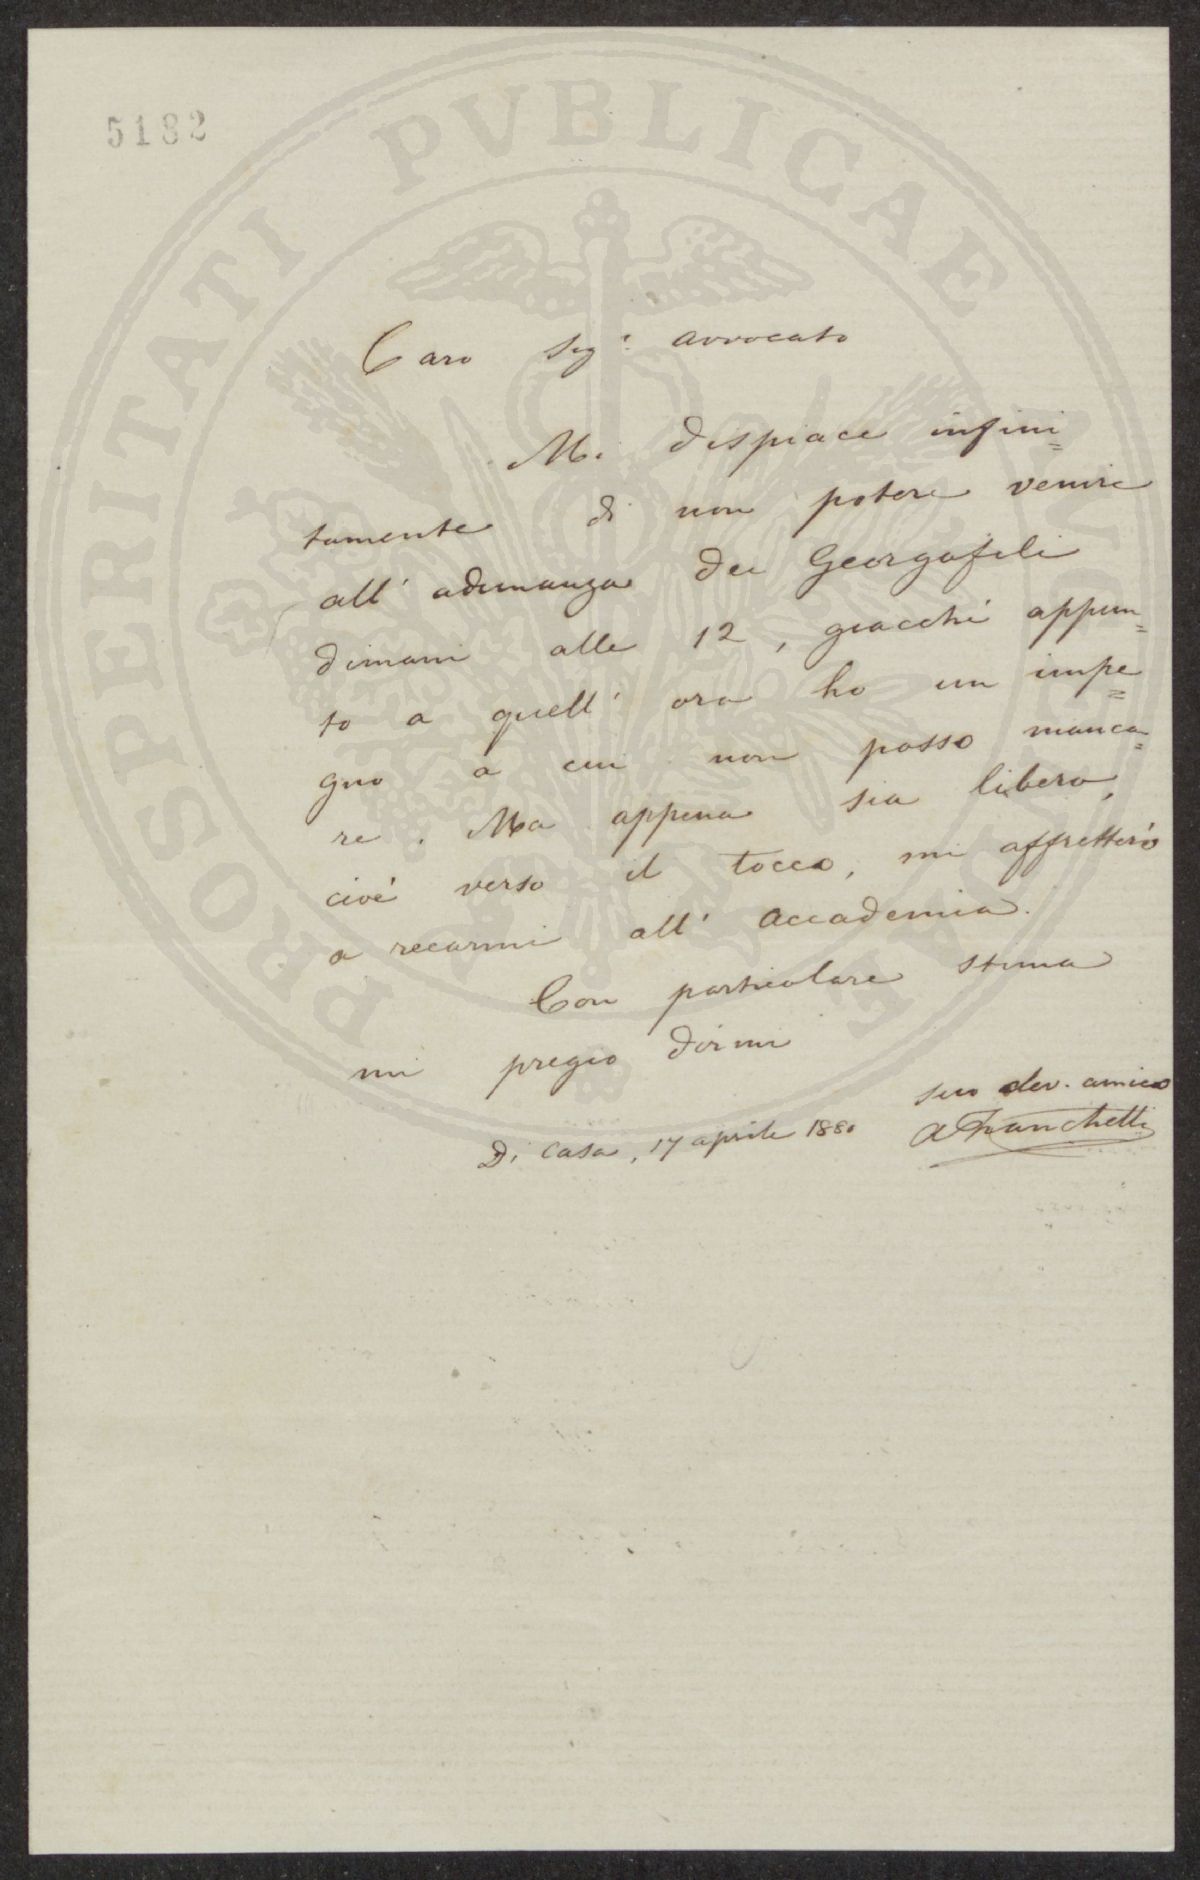 5182
PROSPERITATI PVBLICAE AVGENDAE
Caro Sigr. Avvocato
Mi dispiace infini=
tamente di non potere venire
all' adunanza dei Georgofili
dimani alle 12, giacchè appun=
to a quell' ora ho un impe=
gno a cui non posso manca=
re. Ma appena sia libero,
cioè verso il tocco, mi affretterò
a recarmi all' Accademia.
Con particolare stima
mi pregio dirmi
suo dev. amico
AFranchetti
Di Casa, 17 aprile 1880